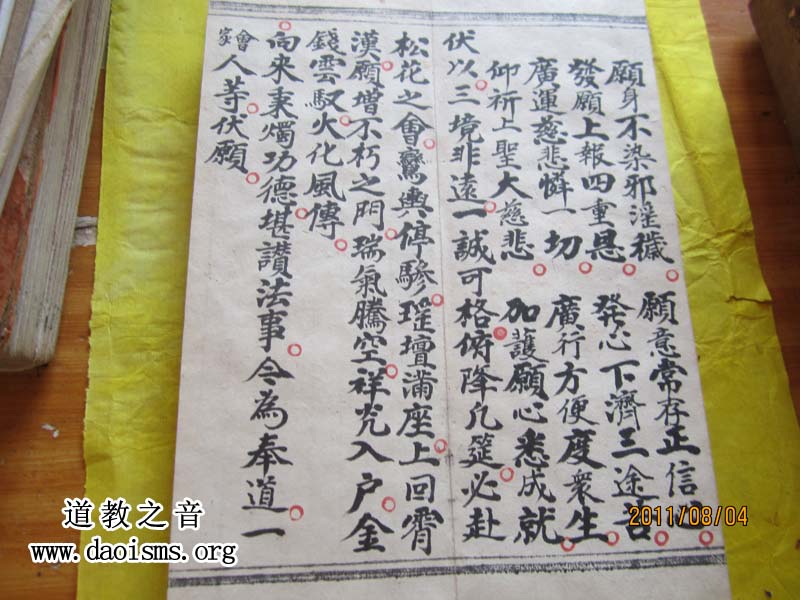 願身不染邪淫穢 願意常存正信
發願上報四重恩 發心下濟三途苦
廣運慈悲憐一切 廣行方便度衆生
仰祈上聖大慈悲 加護願心悉成就
伏以三境非遠一誠可格俯降凡筵必赴
松花之會鸞輿停驂瑶壇滿座上回霄
漢願增不朽之門瑞氣騰空祥光入户金
錢雲馭火化風傳
向来秉燭功德堪讚法事今為奉道一
會家人等伏願
2011/08/04
道教之音
www.daoisms.org